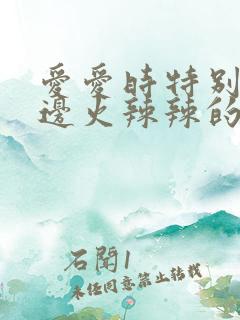 愛愛時特別
邊火辣辣的
石聞1
未經同意禁止轉載